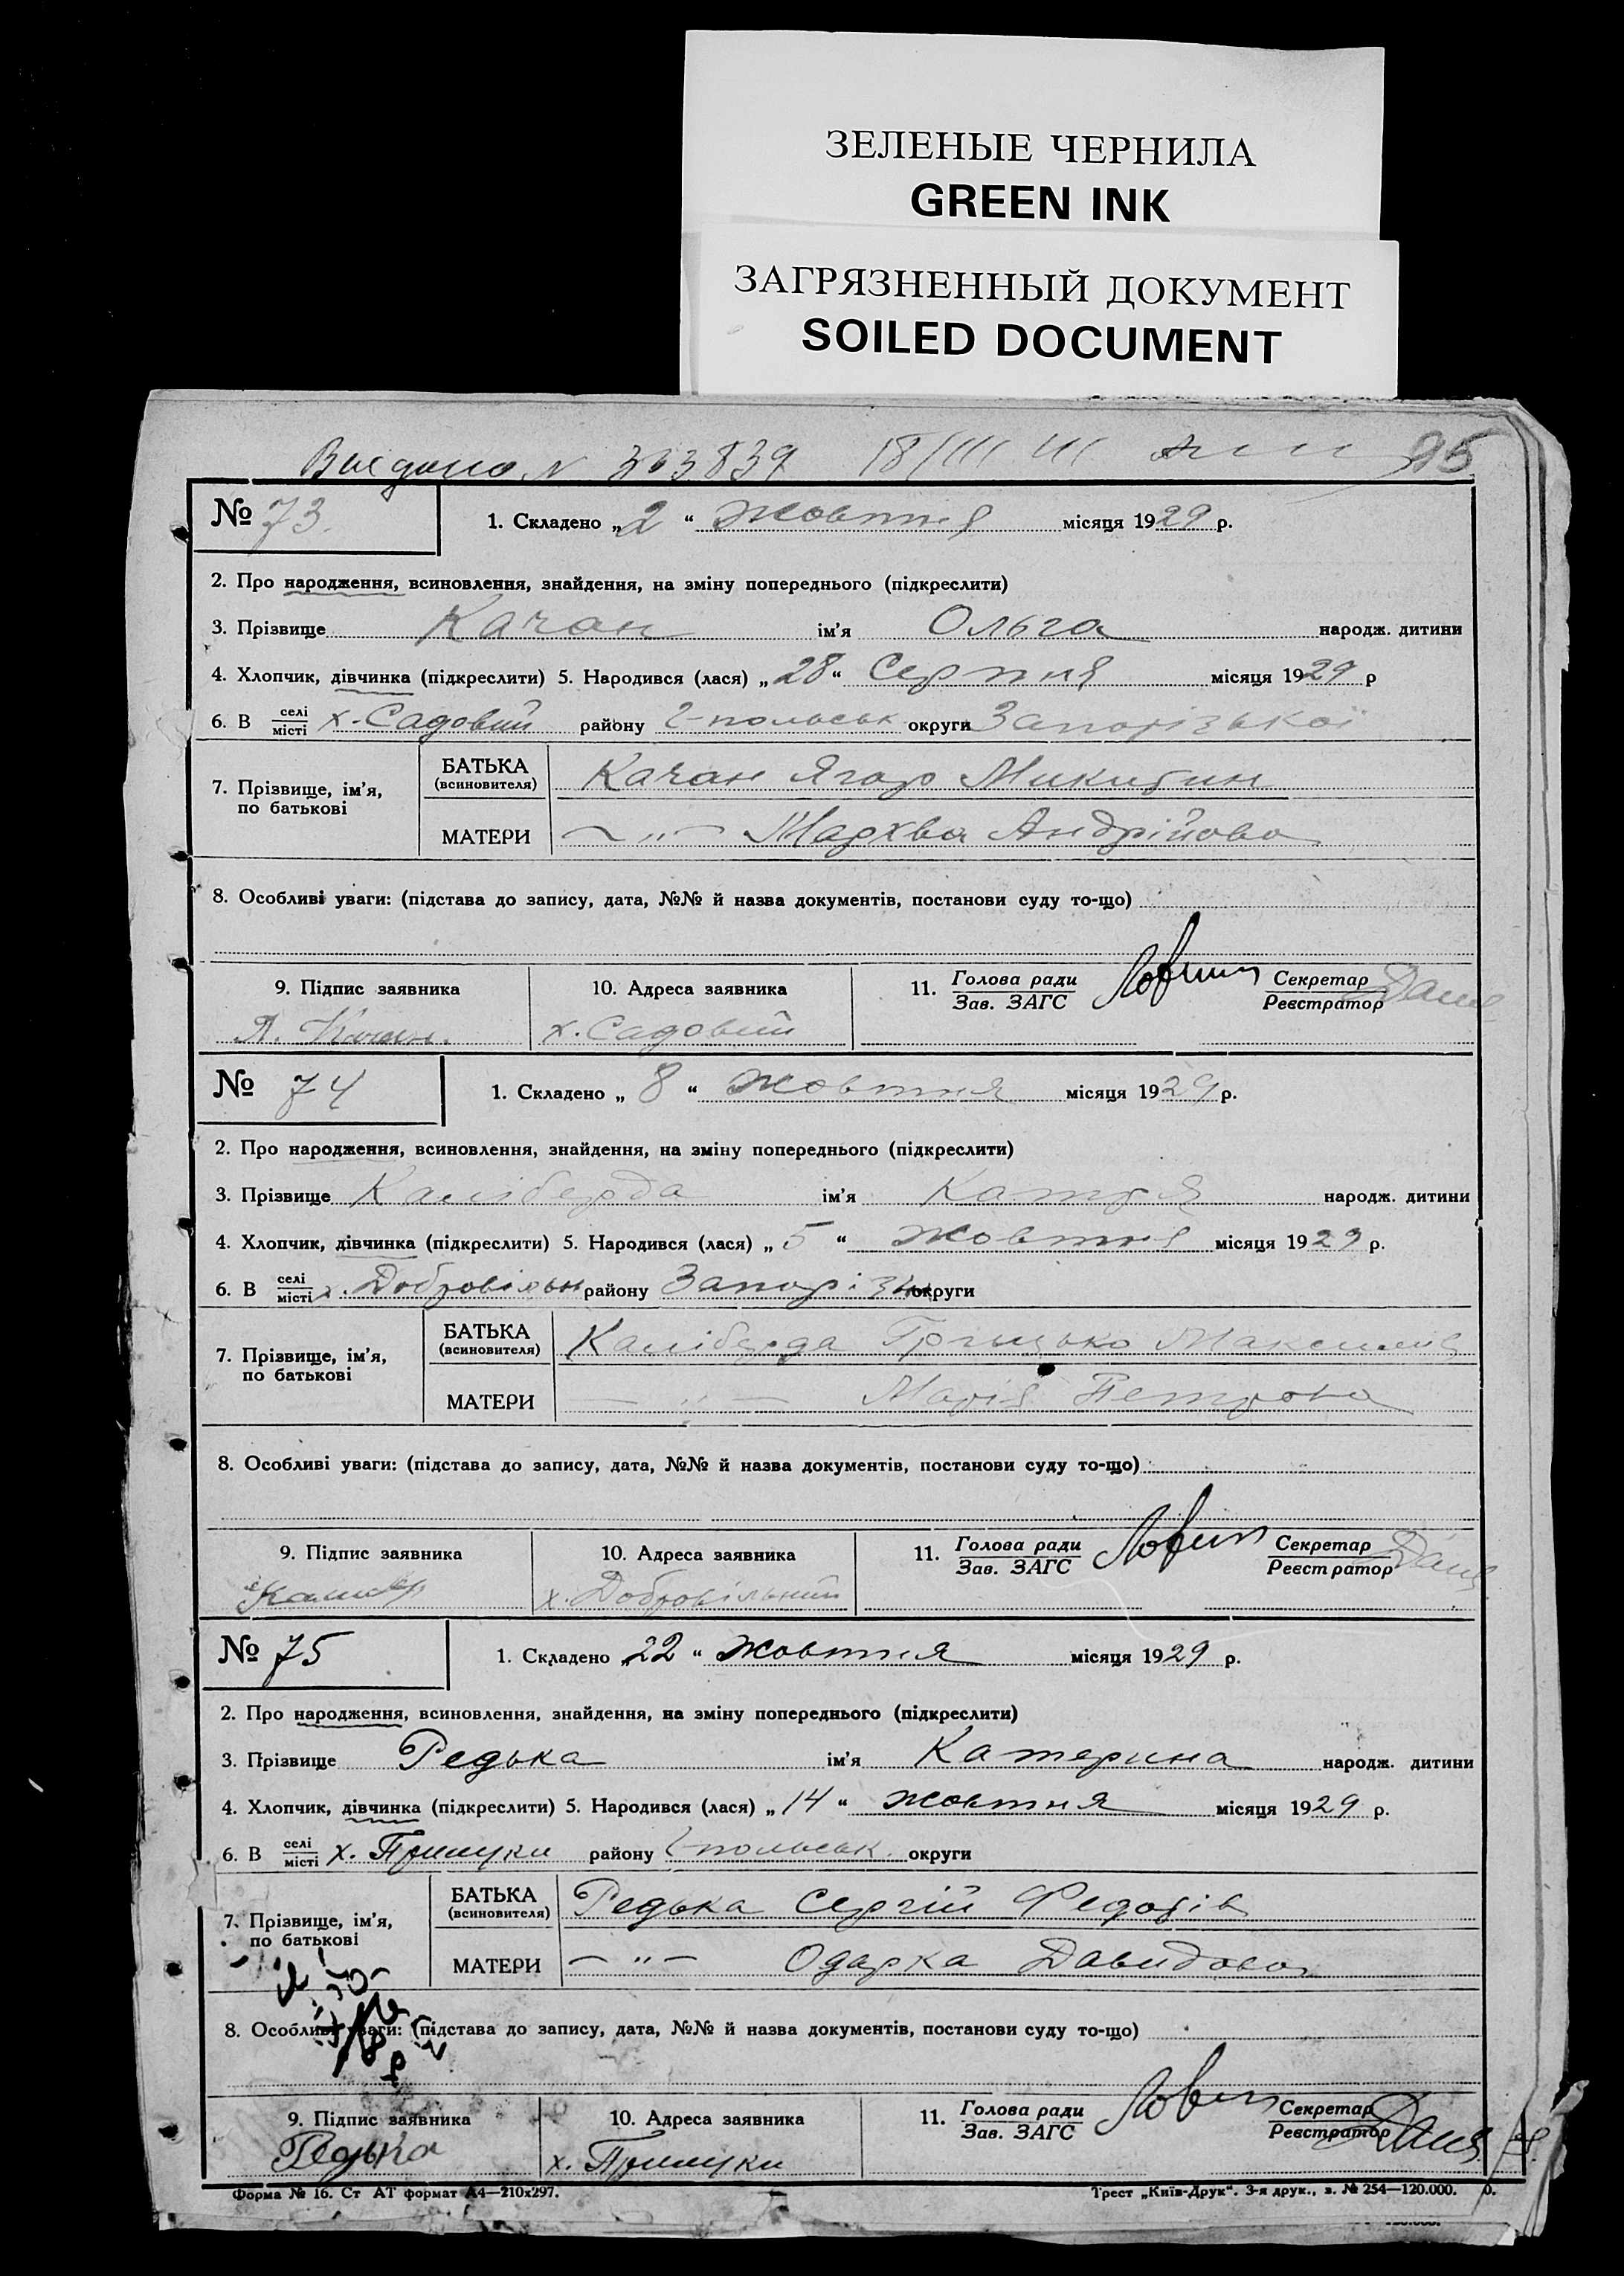 ЗЕЛЕНЫЕ ЧЕРНИЛА
GREEN INK
ЗАГРЯЗНЕННЫЙ ДОКУМЕНТ
SOILED DOCUMENT
95
№ 73. 1. Складено „2“ Жовтня місяця 1929 р.
2. Про народження, всиновлення, знайдення, на зміну попереднього (підкреслити)
3. Прізвище Качан ім'я Ольга народж. дитини
4. Хлопчик, дівчинка (підкреслити) 5. Народився (лася) „28“ Серпня місяця 1929 р
6. В селі місті х. Садовий району округи Запорізької
7. Прізвище, ім'я, по батькові БАТЬКА (всиновителя) Качан Ягор Микитин
МАТЕРИ — „ — Мархва Андрійова
8. Особливі уваги: (підстава до запису, дата, №№ й назва документів, постанови суду то-що)
9. Підпис заявника 10. Адреса заявника 11. Голова ради Зав. ЗАГС Секретар Реєстратор
х. Садовий
№ 74 1. Складено „8“ Жовтня місяця 1929 р.
2. Про народження, всиновлення, знайдення, на зміну попереднього (підкреслити)
3. Прізвище Каліберда ім'я Катря народж. дитини
4. Хлопчик, дівчинка (підкреслити) 5. Народився (лася) „5“ Жовтня місяця 1929 р.
6. В селі місті х. Добровільн району округи
7. Прізвище, ім'я, по батькові БАТЬКА (всиновителя) Каліберда Грицько
МАТЕРИ — „ — Марія Петрова
8. Особливі уваги: (підстава до запису, дата, №№ й назва документів, постанови суду то-що)
9. Підпис заявника 10. Адреса заявника 11. Голова ради Зав. ЗАГС Секретар Реєстратор
х. Добровільний
№ 75 1. Складено „22“ Жовтня місяця 1929 р.
2. Про народження, всиновлення, знайдення, на зміну попереднього (підкреслити)
3. Прізвище Редька ім'я Катерина народж. дитини
4. Хлопчик, дівчинка (підкреслити) 5. Народився (лася) „14“ жовтня місяця 1929 р.
6. В селі місті х. району округи
7. Прізвище, ім'я, по батькові БАТЬКА (всиновителя) Редька Сергій Федорів
МАТЕРИ — „ — Одарка Давидова
8. Особливі уваги: (підстава до запису, дата, №№ й назва документів, постанови суду то-що)
9. Підпис заявника 10. Адреса заявника 11. Голова ради Зав. ЗАГС Секретар Реєстратор
Редька х.
Форма № 16. Ст АТ формат А4—210х297. Трест „Київ-Друк“. 3-я друк., з. № 254—120.000.